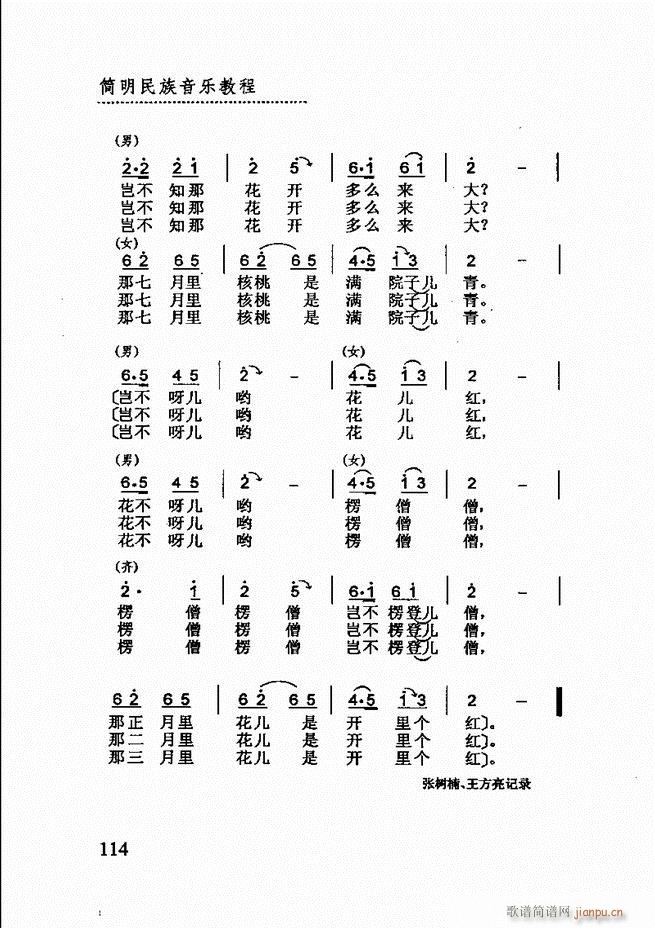 简明民族音乐教程
(男)
2·2 2 1 | 2 5 | 6·1 6 1 | 2 - |
岂不 知那 花 开 多么 来 大?
岂不 知那 花 开 多么 来 大?
岂不 知那 花 开 多么 来 大?
(女)
6 2 6 5 | 6 2 6 5 | 4·5 1 3 | 2 - |
那七 月里 核桃 是 满 院子儿 青。
那七 月里 核桃 是 满 院子儿 青。
那七 月里 核桃 是 满 院子儿 青。
(男) (女)
6·5 4 5 | 2 - | 4·5 1 3 | 2 - |
〔岂不 呀儿 哟 花 儿 红,
〔岂不 呀儿 哟 花 儿 红,
〔岂不 呀儿 哟 花 儿 红,
(男) (女)
6·5 4 5 | 2 - | 4·5 1 3 | 2 - |
花不 呀儿 哟 楞 僧 僧,
花不 呀儿 哟 楞 僧 僧,
花不 呀儿 哟 楞 僧 僧,
(齐)
2· 1 | 2 5 | 6·1 6 1 | 2 - |
楞 僧 楞 僧 岂不 楞登儿 僧,
楞 僧 楞 僧 岂不 楞登儿 僧,
楞 僧 楞 僧 岂不 楞登儿 僧,
6 2 6 5 | 6 2 6 5 | 4·5 1 3 | 2 - |
那正 月里 花儿 是 开 里个 红〕。
那二 月里 花儿 是 开 里个 红〕。
那三 月里 花儿 是 开 里个 红〕。
张树楠、王方亮记录
114
歌谱简谱网 jianpu.cn